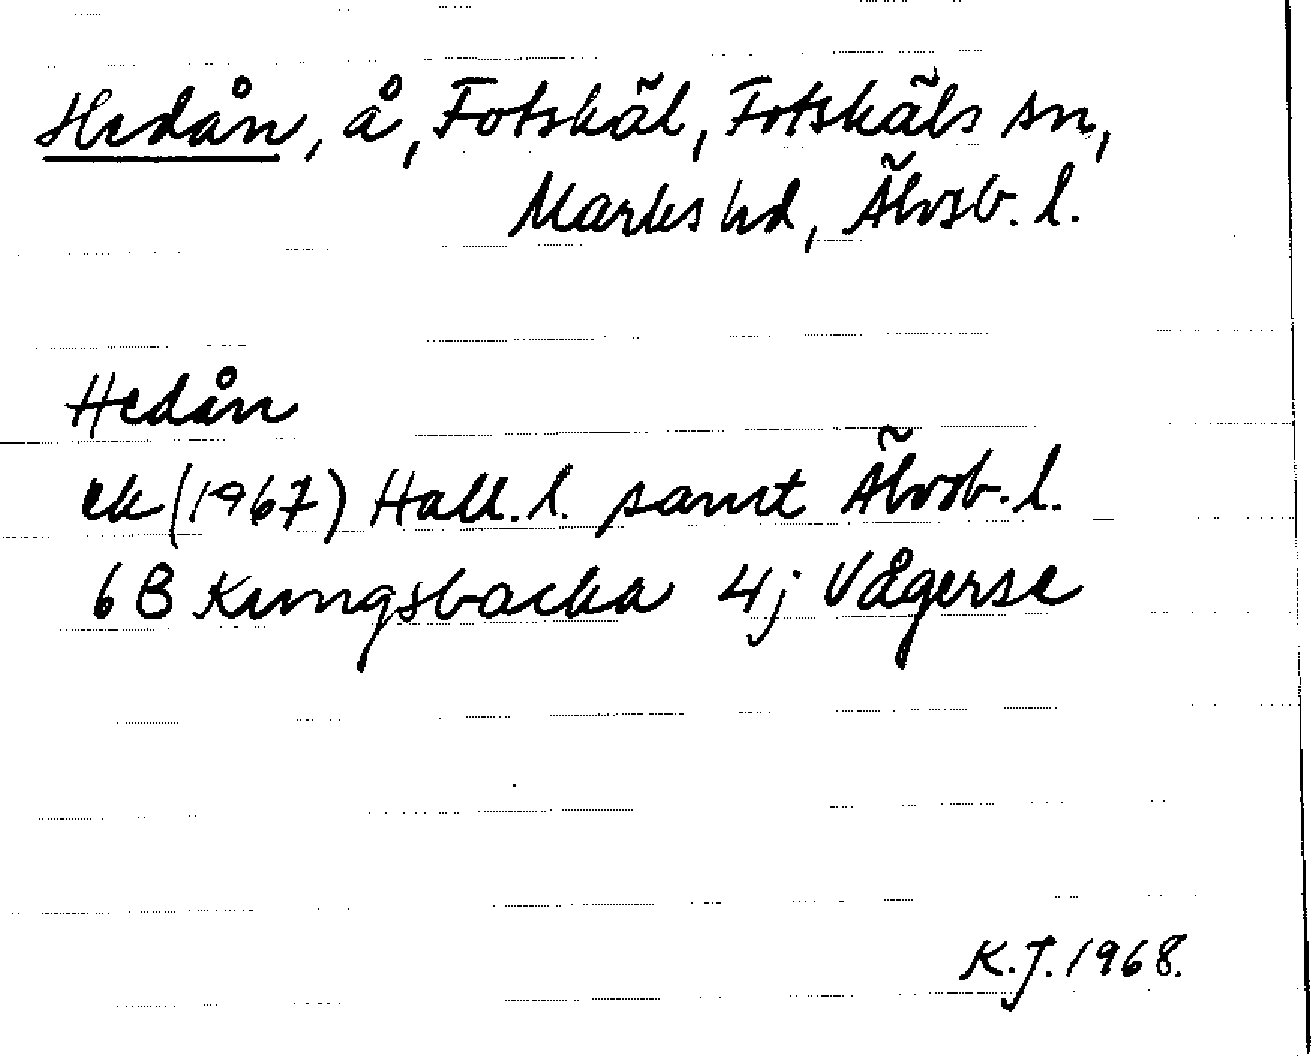 Hedån, å, Fotskäl, Fotskäls sn,
Marks hd, Älvsb. l.
Hedån
ek (1967) Hall. l. samt Älvsb. l.
6B Kungsbacka 4j Vågerse
K.J. 1968.